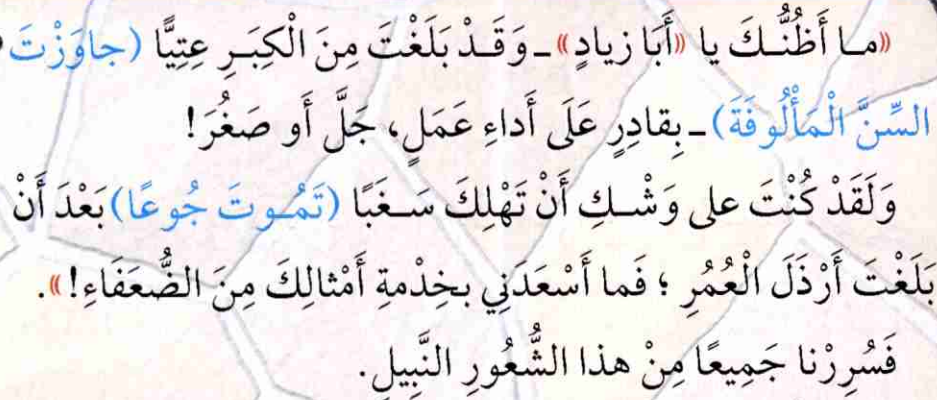 «ما أَظُنُّكَ يا «أَبَا زيادٍ» ـ وَقَدْ بَلَغْتَ مِنَ الْكِبَرِ عِتِيًّا (جاوَزْتَ
السِّنَّ الْمَأْلُوفَةَ) ـ بِقادِرٍ عَلَى أَداءِ عَمَلٍ، جَلَّ أَو صَغُرَ!
وَلَقَدْ كُنْتَ على وَشْكِ أَنْ تَهْلِكَ سَغَبًا (تَمُوتَ جُوعًا) بَعْدَ أَنْ
بَلَغْتَ أَرْذَلَ الْعُمُرِ ؛ فَما أَسْعَدَنِي بخِدْمةِ أَمْثالِكَ مِنَ الضُّعَفَاءِ!».
فَسُرِرْنا جَمِيعًا مِنْ هذا الشُّعُورِ النَّبِيلِ.